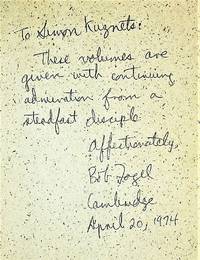 To Simon Kuznets:
These volumes are
given with continuing
admiration from a
steadfast disciple.
Affectionately,
Bob Fogel
Cambridge
April 20, 1974